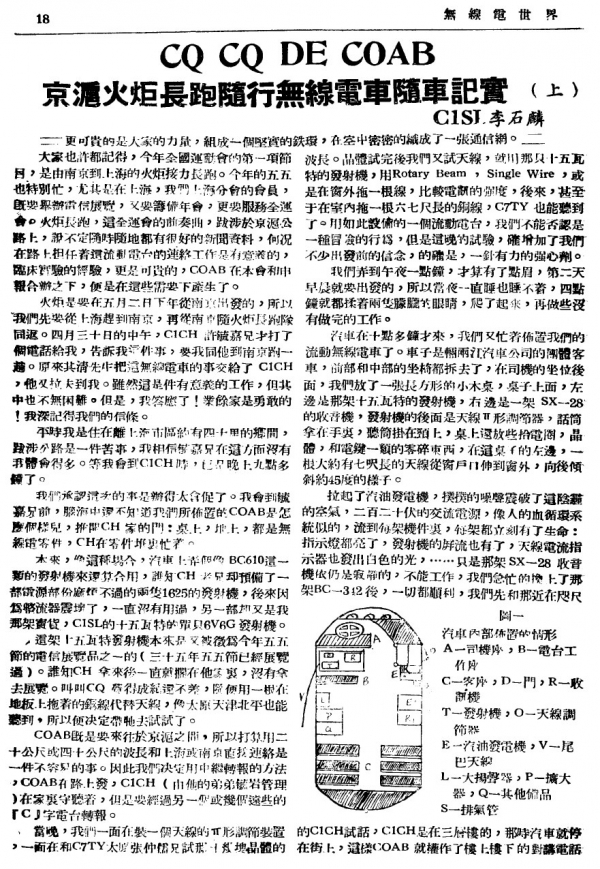 18
無線電世界
CQ CQ DE COAB
京滬火炬長跑隨行無線電車隨車記實（上）
C1SL 李石麟
更可貴的是大家的力量，組成一個堅實的鉄環，在空中密密的織成了一張通信網。
大家也許都記得，今年全國運動會的第一項節
目，是由南京到上海的火炬接力長跑。今年的五五
也特別忙，尤其是在上海，我們上海分會的會員，
既要舉辦電信展覽，又要籌備年會，更要服務全運
會。火炬長跑，這全運會的前奏曲，跋涉於京滬公
路上，說不定隨時隨地都有很好的新聞資料，何況
在路上担任着流動電台的連絡工作是有意義的，
臨床實驗的經驗，更是可貴的，COAB在本會和申
報合辦之下，便是在這些需要下產生了。
火炬是要在五月二日下午從南京出發的，所以
我們先要從上海趕到南京，再從南京隨火炬長跑隊
同返。四月三十日的中午，C1CH 許毓嘉兄才打了
個電話給我，告訴我這件事，要我同他到南京跑一
趟。原來其清先生把這無線電車的事交給了 C1CH
，他又拉夫到我。雖然這是件有意義的工作，但其
中也不無困難。但是，我答應了！業餘家是勇敢的
！我深記得我們的信條。
平時我是住在離上海市區約有四十里的鄉間，
跋涉公路是一件苦事，我相信毓嘉兄在這方面沒有
我體會得多。等我會到C1CH時，已是晚上九點多
鐘了。
我們承認這次的事是辦得太倉促了。我會到毓
嘉兄前，腦海中還不知道我們所佈置的COAB是怎
麽個樣兒，推開CH 家的門：桌上，地上，都是無
線電零件，CH在零件堆裏忙着。
本來，像這種場合，汽車上弄個像BC610這一
類的發射機來還算合用，誰知CH 老兄却預備了一
部電源部份應煩不過的兩隻1625的發射機，後來因
為整流器震壞了，一直沒有用過，另一部却又是我
那架寶貨，C1SL的十五瓦特的單只6V6G發射機。
這架十五瓦特發射機本來是又被徵為今年五五
節的電信展覽品之一的（三十五年五五節已經展覽
過）。誰知CH 拿來後一直就擱在他家裏，沒有拿
去展覽。叫叫CQ 覺得成績還不差，隨便用一根在
地板上拖着的銀線代替天線，像太原天津北平也能
聽到，所以便決定帶牠去試試了。
COAB既是要來往於京滬之間，所以打算用二
十公尺或四十公尺的波長和上海或南京直接連絡是
一件不容易的事。因此我們決定用中繼轉報的方法
，COAB在路上發，C1CH（由他的弟弟毓岩管理
）在家裏守聽着，但是要經過另一個或幾個遠些的
『C』字電台轉報。
當晚，我們一面在裝一個天線的π形調節裝置
，一面在和C7TY太原張仲儒兄試那十幾塊晶體的
波長。晶體試完後我們又試天線，就用那只十五瓦
特的發射機，用Rotary Beam，Single Wire，或
是在窗外拖一根線，比較電訊的強度，後來，甚至
于在室內拖一根六七尺長的銅線，C7TY 也能聽到
了。用如此設備的一個流動電台，我們不能否認是
一種冒險的行為，但是這晚的試驗，確增加了我們
不少出發前的信念，的確是，一針有力的強心劑。
我們弄到午夜一點鐘，才算有了點眉，第二天
早晨就要出發的，所以當夜一直睡也睡不着，四點
鐘就都揉着兩隻朦朧的眼睛，爬了起來，再做些沒
有做完的工作。
汽車在十點多鐘才來，我們又忙着佈置我們的
流動無線電車了。車子是輛兩江汽車公司的團體客
車，前部和中部的坐椅都拆去了，在司機的坐位後
面，我們放了一張長方形的小木桌，桌子上面，左
邊是那架十五瓦特的發射機，右邊是一架 SX—28
的收音機，發射機的後面是天線π形調節器，話筒
拿在手裏，聽筒掛在頸上，桌上還放些拍電閣，晶
體，和電鍵一類的零碎東西，在這桌子的左邊，一
根大約有七呎長的天線從窗戶口伸到窗外，向後傾
斜約45度的樣子。
拉起了汽油發電機，撲撲的噪聲震破了這陰霾
的空氣，二百二十伏的交流電源，像人的血循環系
統似的，流到每架機件裏，每架都立刻有了生命：
指示燈都亮了，發射機的屏流也有了，天線電流指
示器也發出白色的光，……只是那架SX—28 收音
機依仍是寂靜的，不能工作，我們急忙的換上了那
架BC—342後，一切都順利，我們先和那近在咫尺
圖一
汽車內部佈置的情形
A—司機座，B—電台工
作座
C—客座，D—門，R—收
訊機
T—發射機，O—天線調
節器
E—汽油發電機，V—尾
巴天線
L—大揚聲器，P—擴大
器，Q—其他備品
S—排氣管
的C1CH試話，C1CH是在三層樓的，那時汽車就停
在街上，這樣COAB 就權作了樓上樓下的對講電話